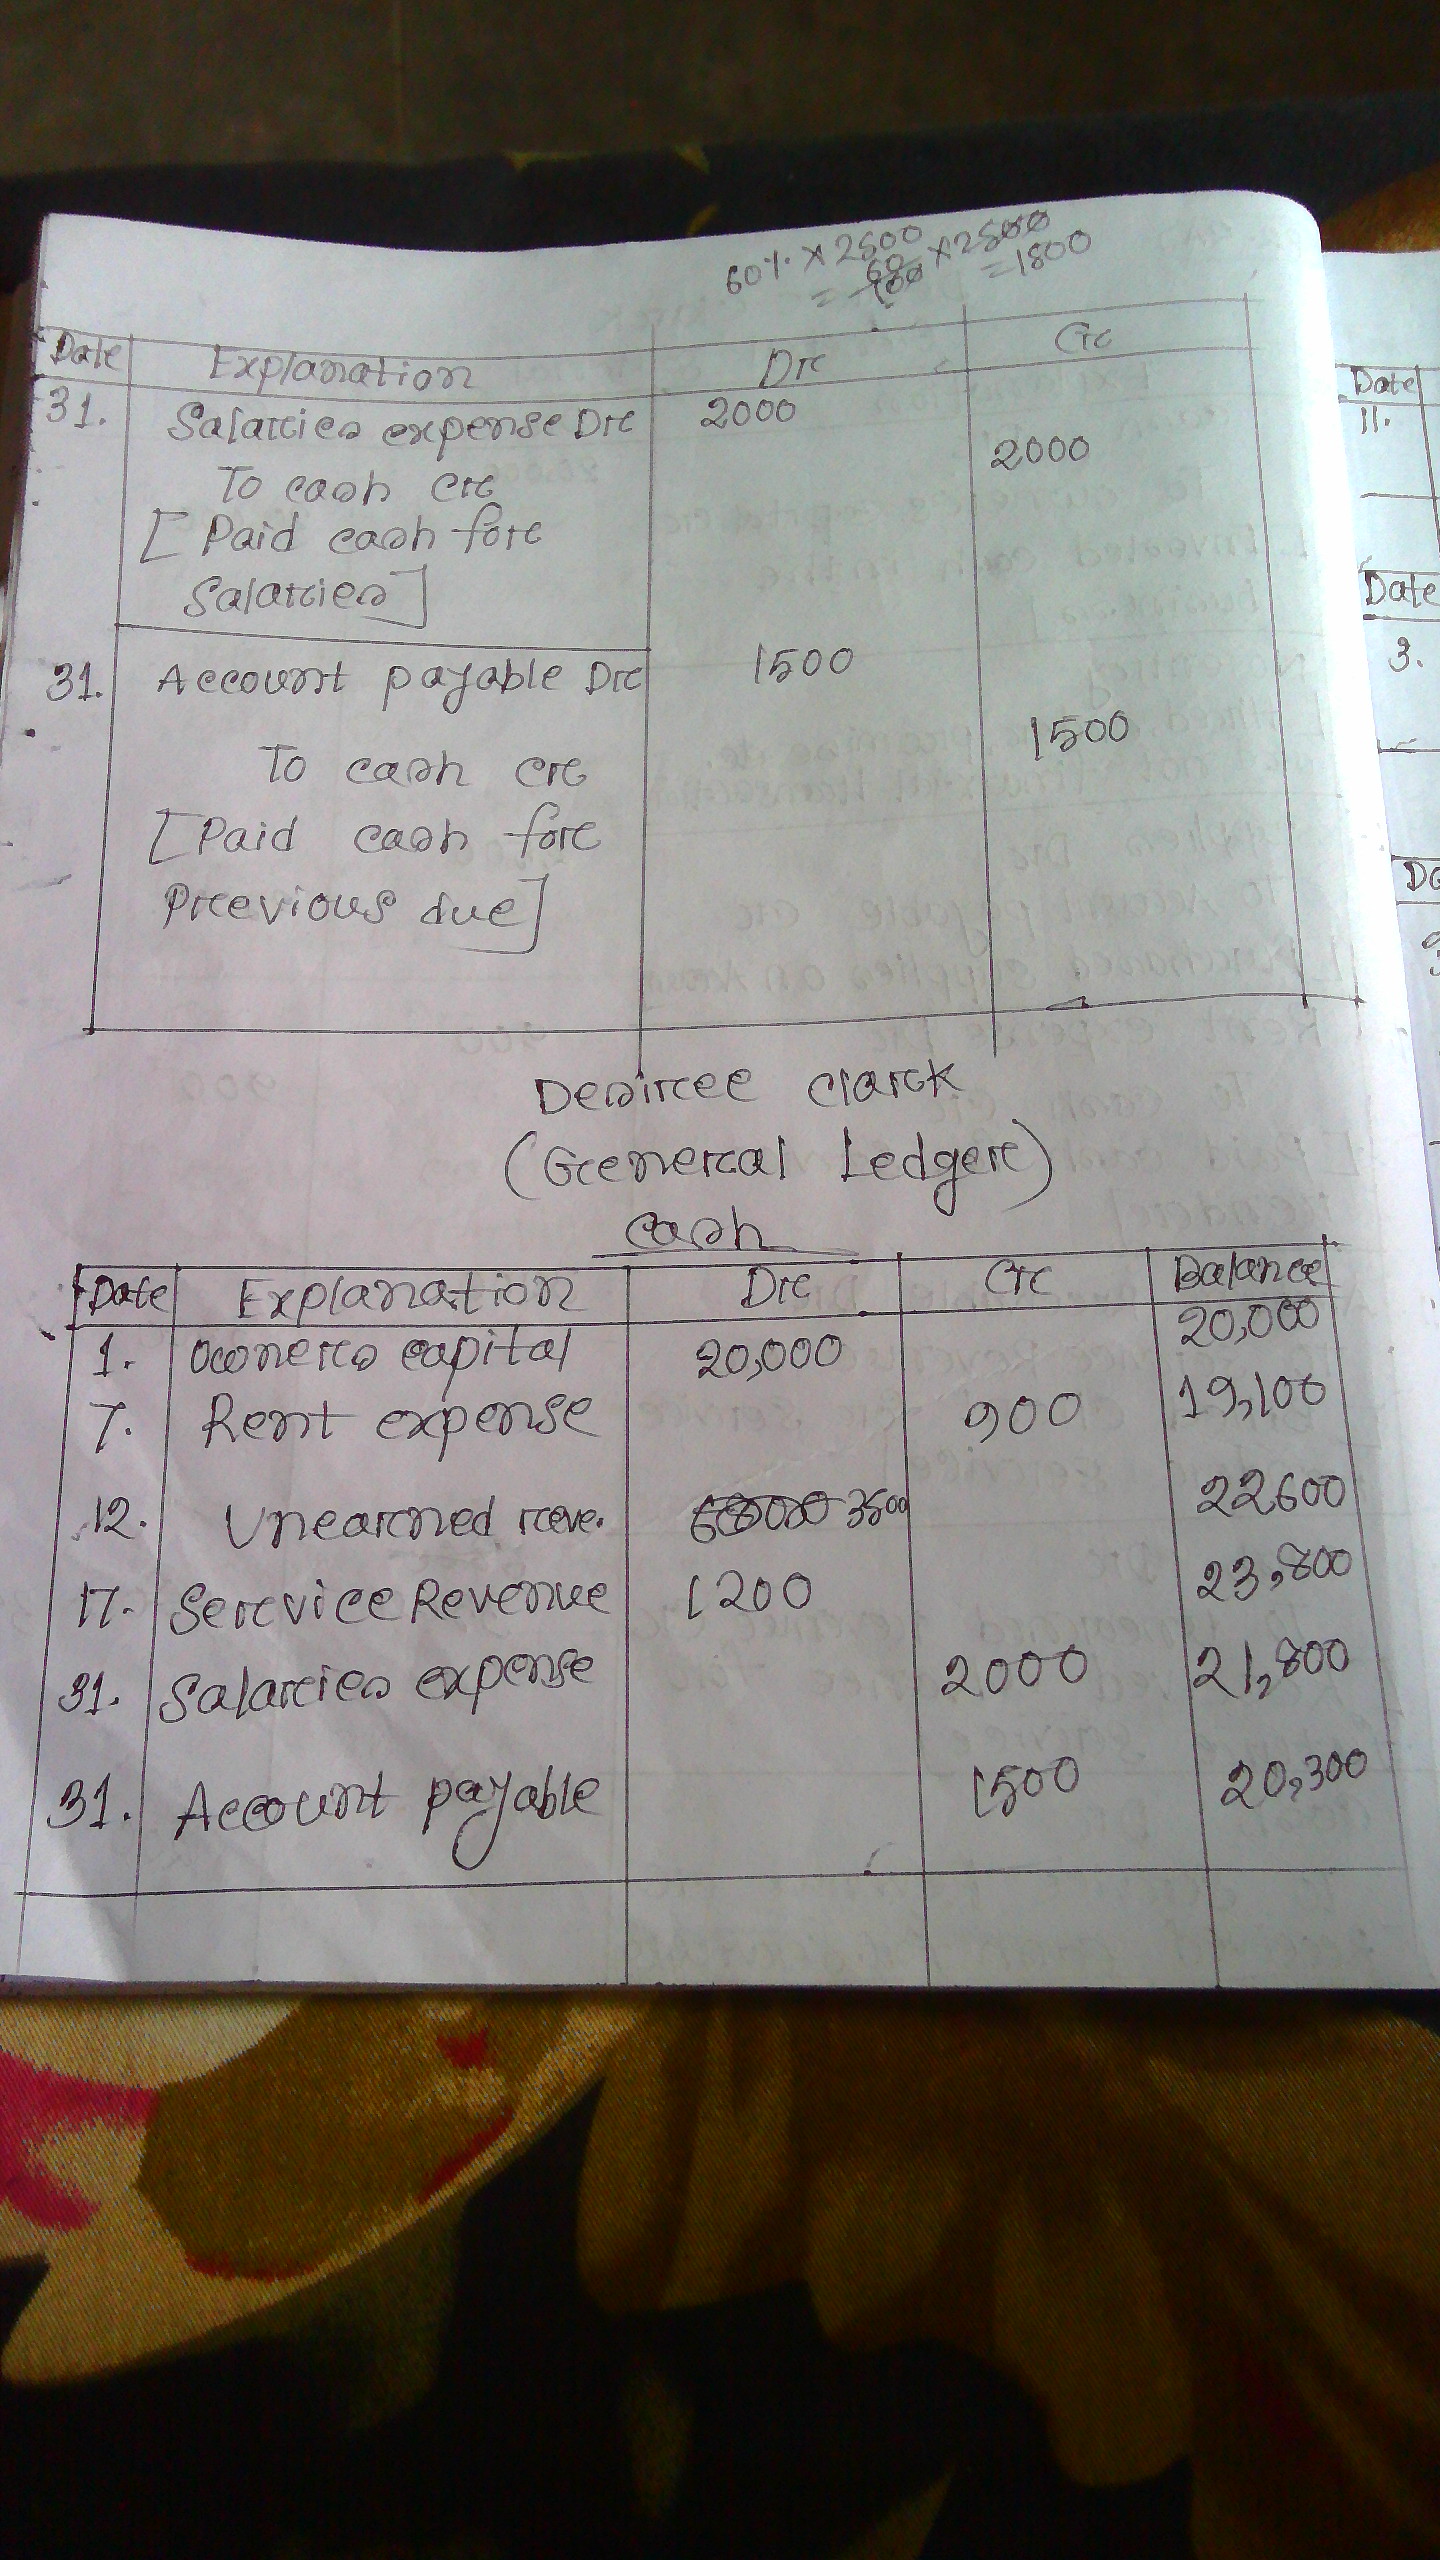 60% × 2500
= 60/100 × 2500
= 1800
Date Explanation Dr Cr
31. Salaries expense Dr 2000
To cash cr 2000
[Paid cash for
Salaries]
31. Account payable Dr 1500
To cash cr 1500
[Paid cash for
Previous due]
Desiree Clark
(General Ledger)
Cash
Date Explanation Dr Cr Balance
1. Owners capital 20,000 20,000
7. Rent expense 900 19,100
12. Unearned reve. 3500 22600
17. Service Revenue 1200 23,800
31. Salaries expense 2000 21,800
31. Account payable 1500 20,300
Date
11.
Date
3.